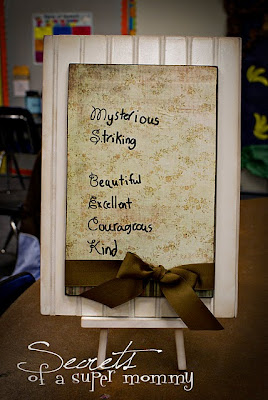 Mysterious
Striking
Beautiful
Excellent
Courageous
Kind
Secrets
of a super mommy